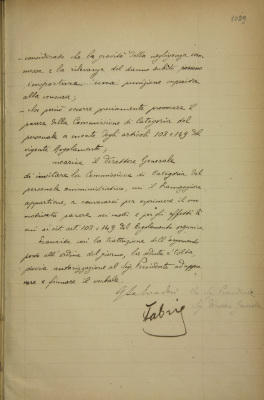 1029
- considerato che la gravità della negligenza com-
messa e la rilevanza del danno
comporterebbe una punizione superiore
alla censura;
- che perciò occorre previamente provocare il
parere della Commissione di Categoria del
personale a mente degli articoli 108 e 149 del
vigente Regolamento;
incarica il Direttore Generale
di invitare la Commissione di Categoria del
personale amministrativo, cui il Ranuggione
appartiene, a convocarsi per esprimere il suo
motivato parere nei modi e per gli effetti di
cui ai cit. art. 108 e 149 del Regolamento organico.
Esaurita così la trattazione dell'argomento
posto all'ordine del giorno, la seduta è tolta
previa autorizzazione al Sig. Presidente ad appro-
vare e firmare il verbale.
Il Presidente
Il Direttore Generale